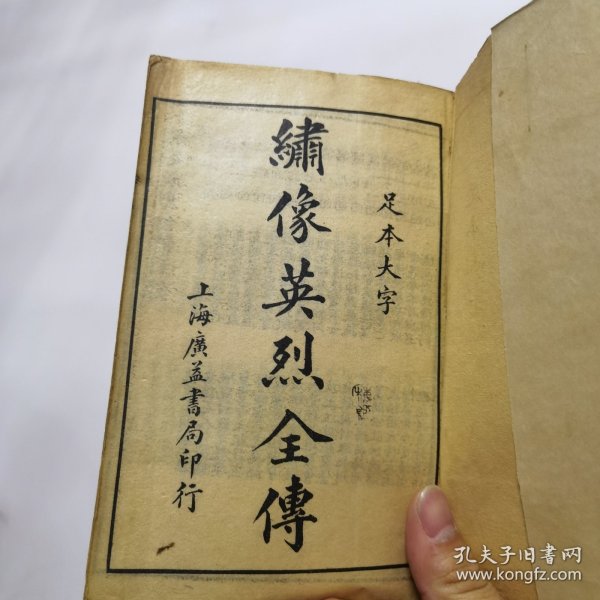 足本大字
繡像英烈全傳
上海廣益書局印行
孔夫子旧书网
www.kongfz.com